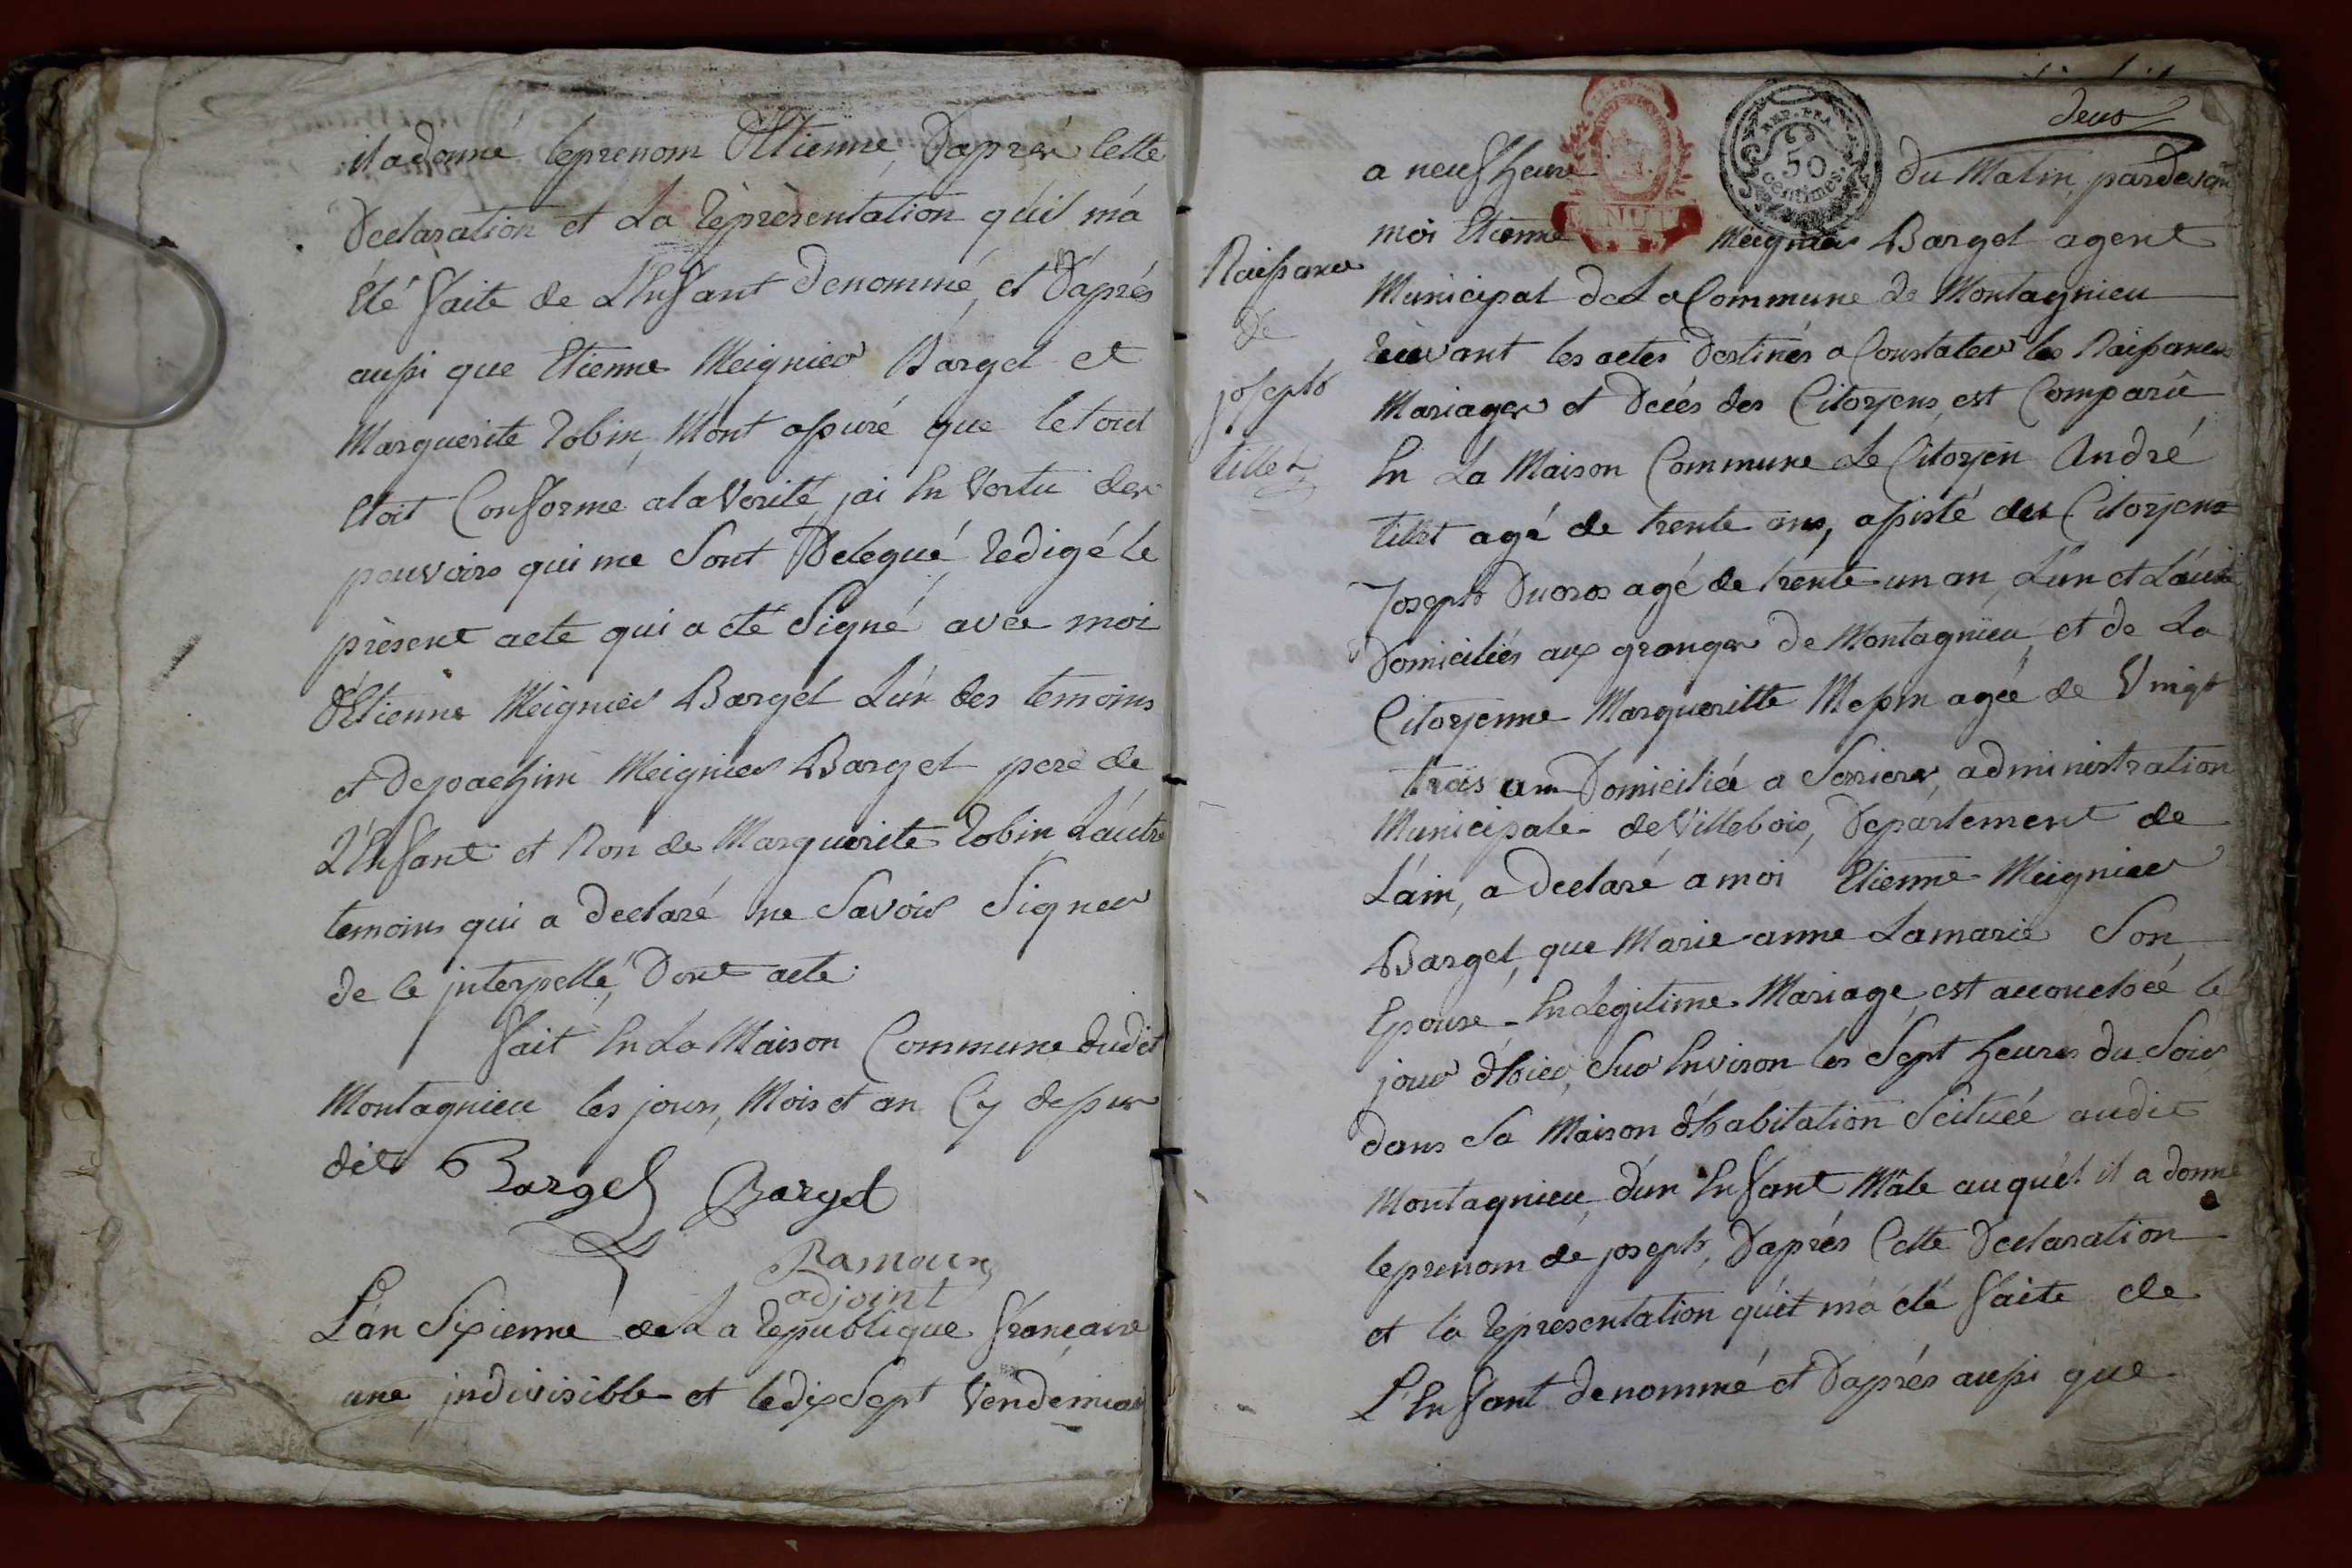 il a donné le prenom d'Etienne, D'après Cette
Declaration et La réprèsentation qu'il m'a
Été faite de L'Enfant denommé, et D'aprés
aussi que Etienne Meignier Barget et
Marguerite Robin, M'ont assuré que le tout
Etoit Conforme a la Verité, jai En Vertu des
pouvoirs qui me Sont Delegué, redigé le
prèsent acte qui a été Signé avec moi
d'Etienne Meignier Barget L'un des temoins
et de joachim Meignier Barget pere de
L'Enfant et Non de Marguerite Robin, L'autre
temoins qui a declaré ne Savoir Signer
de ce jnterpellé, Dont acte.
fait En La Maison Commune dudit
Montagnieu les jour, Mois et an Cy dessus
dit Barget Barget
Ramoux
adjoint
L'an Sixieme de La republique française
une jndivisible et le dix Sept Vendémiair
deux
REP. FRA.
50
centimes
a neuf heure du Matin, pardevant
moi Etienne Meignier Barget agent
Municipal de La Commune de Montagnieu
Naissance
de
joseph
tillet
recevant les actes Destinés a Constater les Naissances
Mariages et Decés des Citoyens, est Comparû
En La Maison Commune Le Citoyen André
tillet agé de trente ans, assisté des Citoyens
Joseph Ducros agé de trente un an, L'un et L'autre
Domiciliés aux granges de Montagnieu, et de La
Citoyenne Margueritte Messin agée de Vingt
trois an Domiciliée a Serrieres, administration
Municipale de Villebois, Département de
L'ain, a declaré a moi Etienne Meignier
Barget, que Marie anne Lamarie Son
Epouse En Legitime Mariage, est accouchée le
jour d'hier, Sur Environ les Sept heures du Soir
dans Sa Maison d'habitation Scituée audit
Montagnieu d'un Enfant Mâle auquel il a donné
le prenom de joseph, D'après Cette Declaration
et la réprésentation qu'il m'a été faite de
L'Enfant denommé et D'aprés aussi que